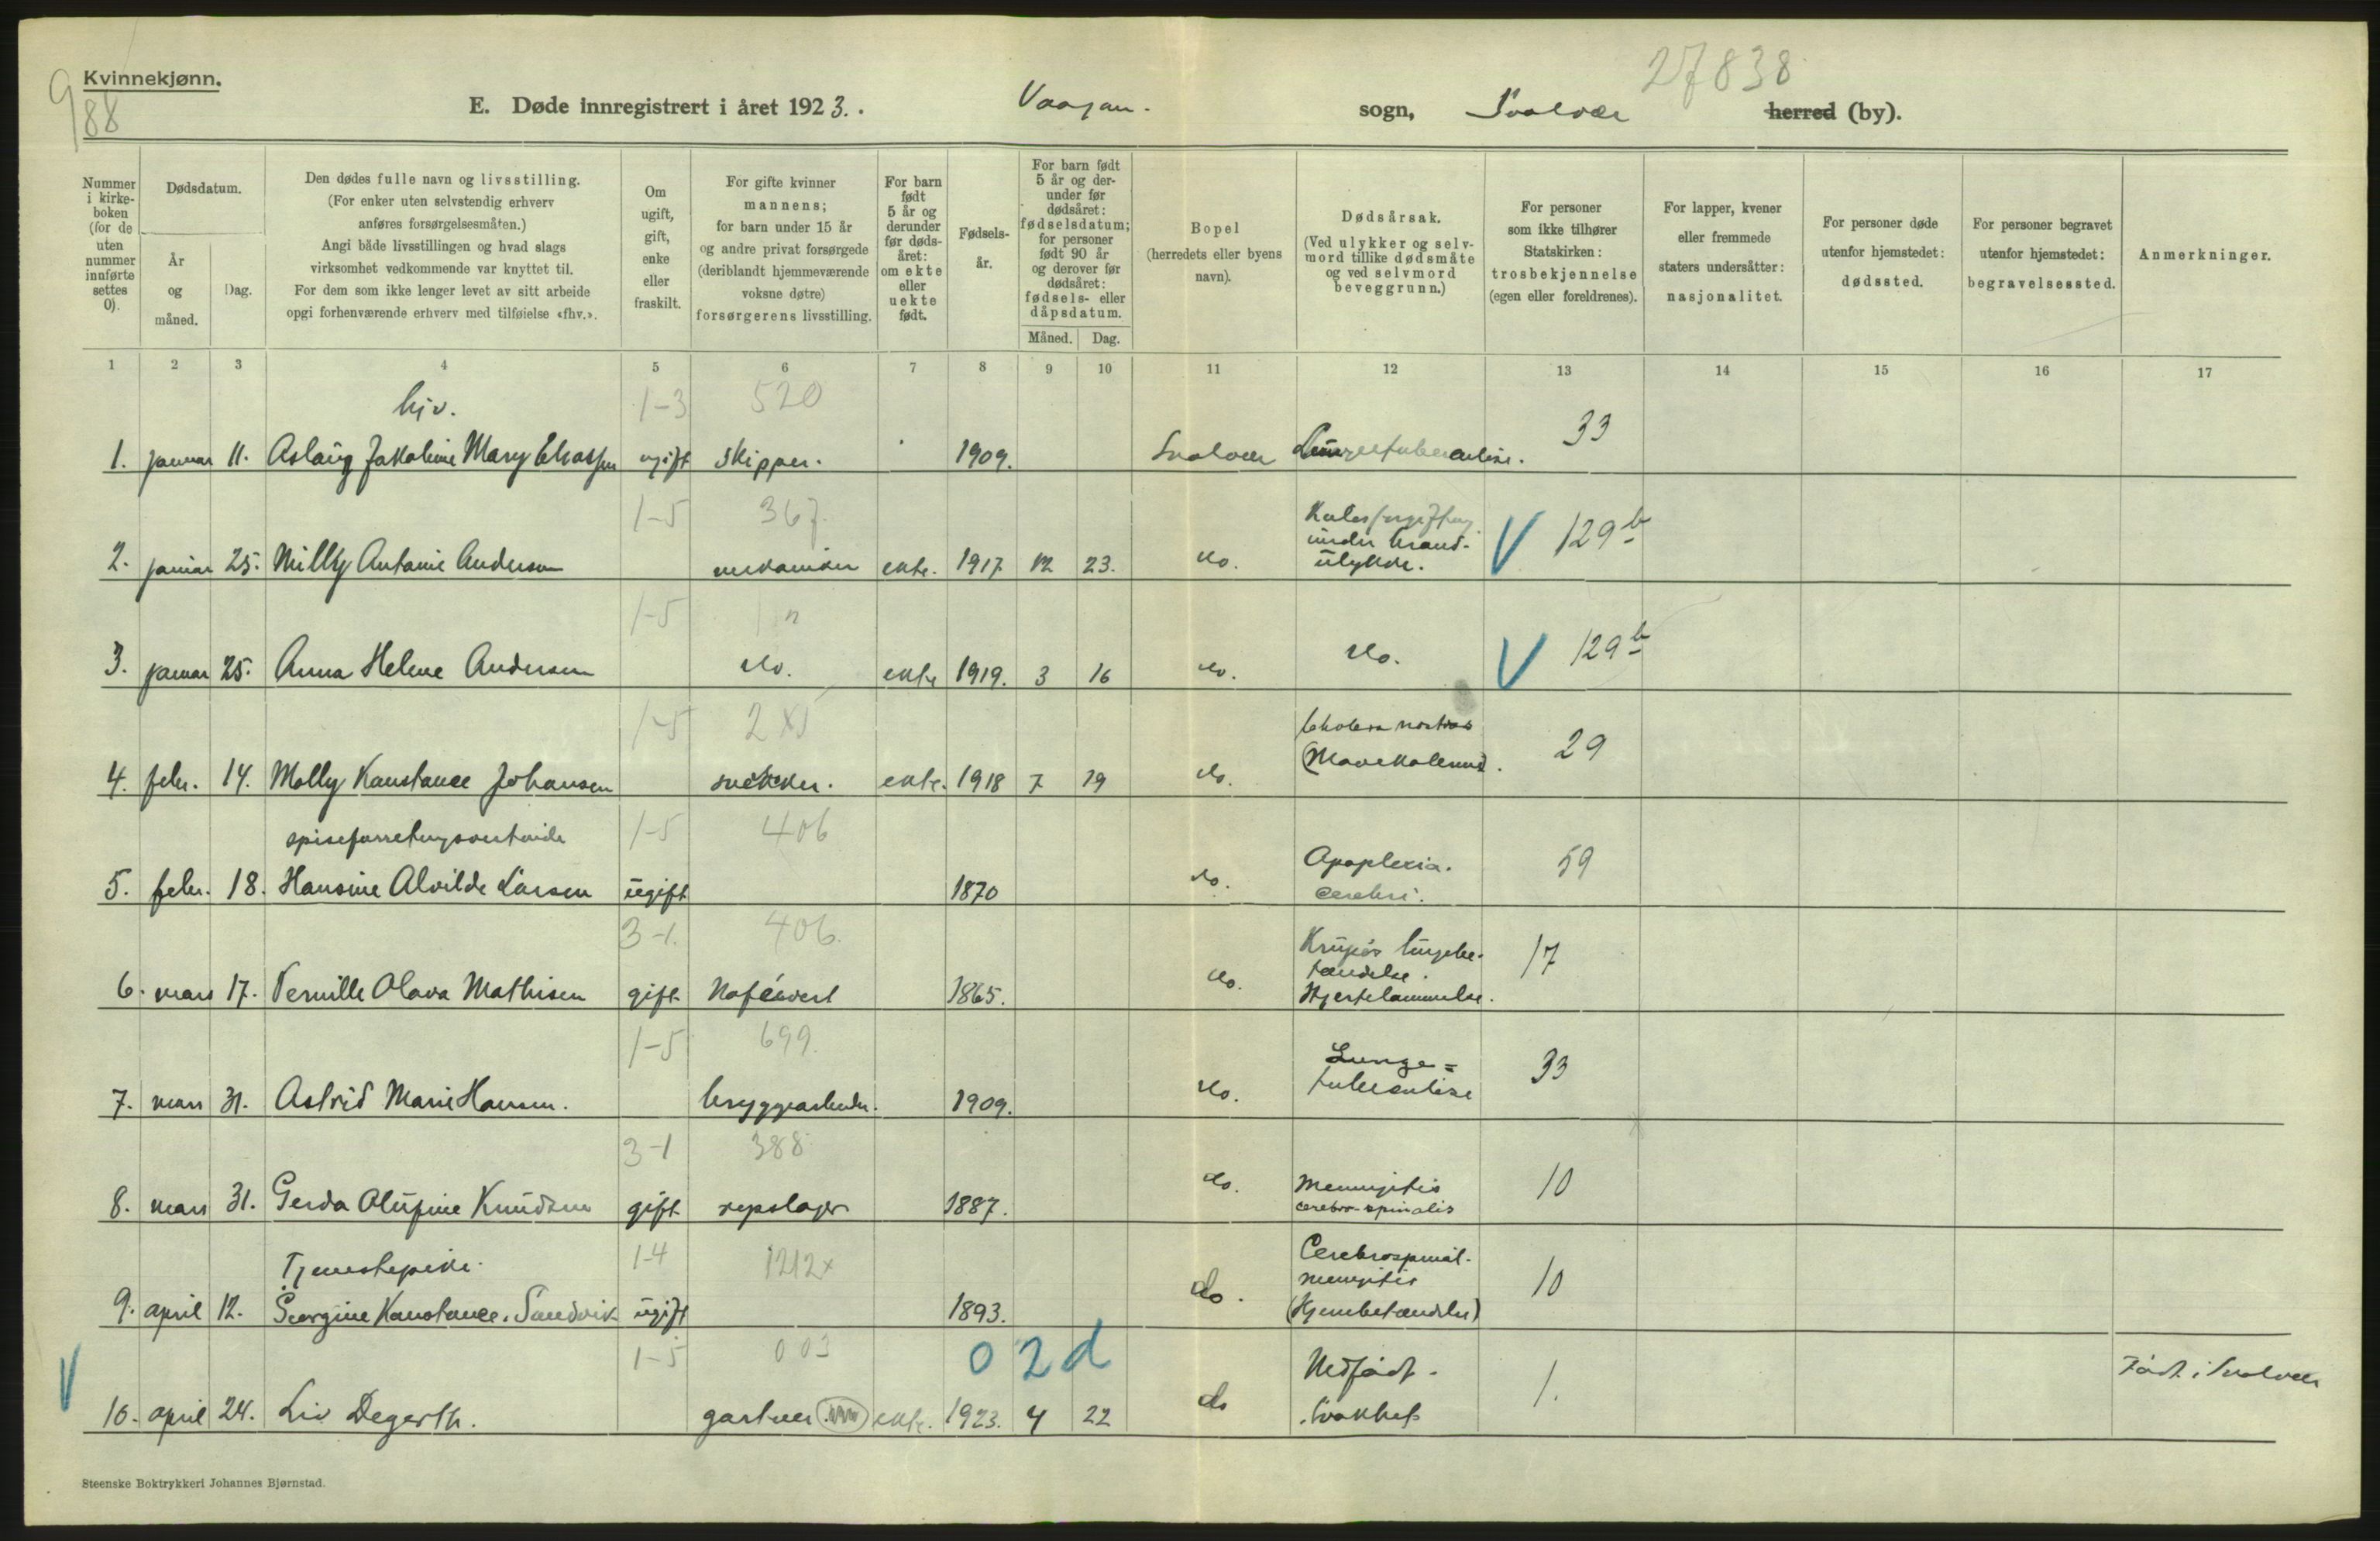 27838
Kvinnekjønn.
988
E. Døde innregistrert i året 1923. Vaagan. sogn, Svolvær herred (by).
Nummer i kirkeboken (for de uten nummer innførte settes 0).
Dødsdatum.
År og måned.
Dag.
Den dødes fulle navn og livsstilling.
(For enker uten selvstendig erhverv
anføres forsørgelsesmåten.)
Angi både livsstillingen og hvad slags
virksomhet vedkommende var knyttet til.
For dem som ikke lenger levet av sitt arbeide
opgi forhenværende erhverv med tilføielse «fhv.».
Om ugift, gift, enke eller fraskilt.
For gifte kvinner
mannens;
for barn under 15 år
og andre privat forsørgede
(deriblandt hjemmeværende
voksne døtre)
forsørgerens livsstilling.
For barn født 5 år og derunder før dødsåret: om ekte eller uekte født.
Fødselsår.
For barn født 5 år og derunder før dødsåret: fødselsdatum; for personer født 90 år og derover før dødsåret: fødsels- eller dåpsdatum.
Måned. Dag.
Bopel
(herredets eller byens
navn).
Dødsårsak.
(Ved ulykker og selvmord tillike dødsmåte og ved selvmord beveggrunn.)
For personer
som ikke tilhører
Statskirken:
trosbekjennelse
(egen eller foreldrenes).
For lapper, kvener
eller fremmede
staters undersåtter:
nasjonalitet.
For personer døde
utenfor hjemstedet:
dødssted.
For personer begravet
utenfor hjemstedet:
begravelsessted.
Anmerkninger.
1 2 3 4 5 6 7 8 9 10 11 12 13 14 15 16 17
hjv. 1-3 520
1. januar 11. Aslaug Jakobine Mary Eliassen ugift skipper. 1909. Svolvær Lungetuberculose. 33
1-5 367
2. januar 25. Milly Antonie Andersen mekaniker ekte. 1917. 12 23. do. Kulosforgiftning under brandulykke. V 129b
1-5
3. januar 25. Anna Helene Andersen do. ekte 1919. 3 16 do. do. V 129b
1-5 2X5
4. febr. 14. Molly Konstance Johansen snekker. ekte. 1918 7 19 do. Cholera nostras (Mavekatarrh). 29
spiseforretningsvertinde 1-5 406
5. febr. 18. Hansine Alvilde Larsen ugift 1870 do. Apoplexia cerebri. 59
3-1. 406.
6. mars 17. Pernille Olava Mathisen gift kafévert 1865. do. Krupøs lungebetændelse. Hjertelammelse. 17
1-5 699.
7. mars 31. Astrid Marie Hansen. bryggearbeider. 1909. do. Lunge= tuberculose 33
3-1 388
8. mars 31. Gerda Olufine Knudsen gift repslager 1887. do. Meningitis cerebro-spinalis 10
Tjenestepike. 1-4 1212x
9. april 12. Georgine Konstance. Sandvik ugift 1893. do. Cerebrospinalmeningitis (Hjernebetændelse) 10
1-5 003 02d
V 10. april 24. Liv Degerth. gartner ekte. 1923. 4 22 do Medfødt svakhet 1. Født i Svolvær
Steenske Boktrykkeri Johannes Bjørnstad.